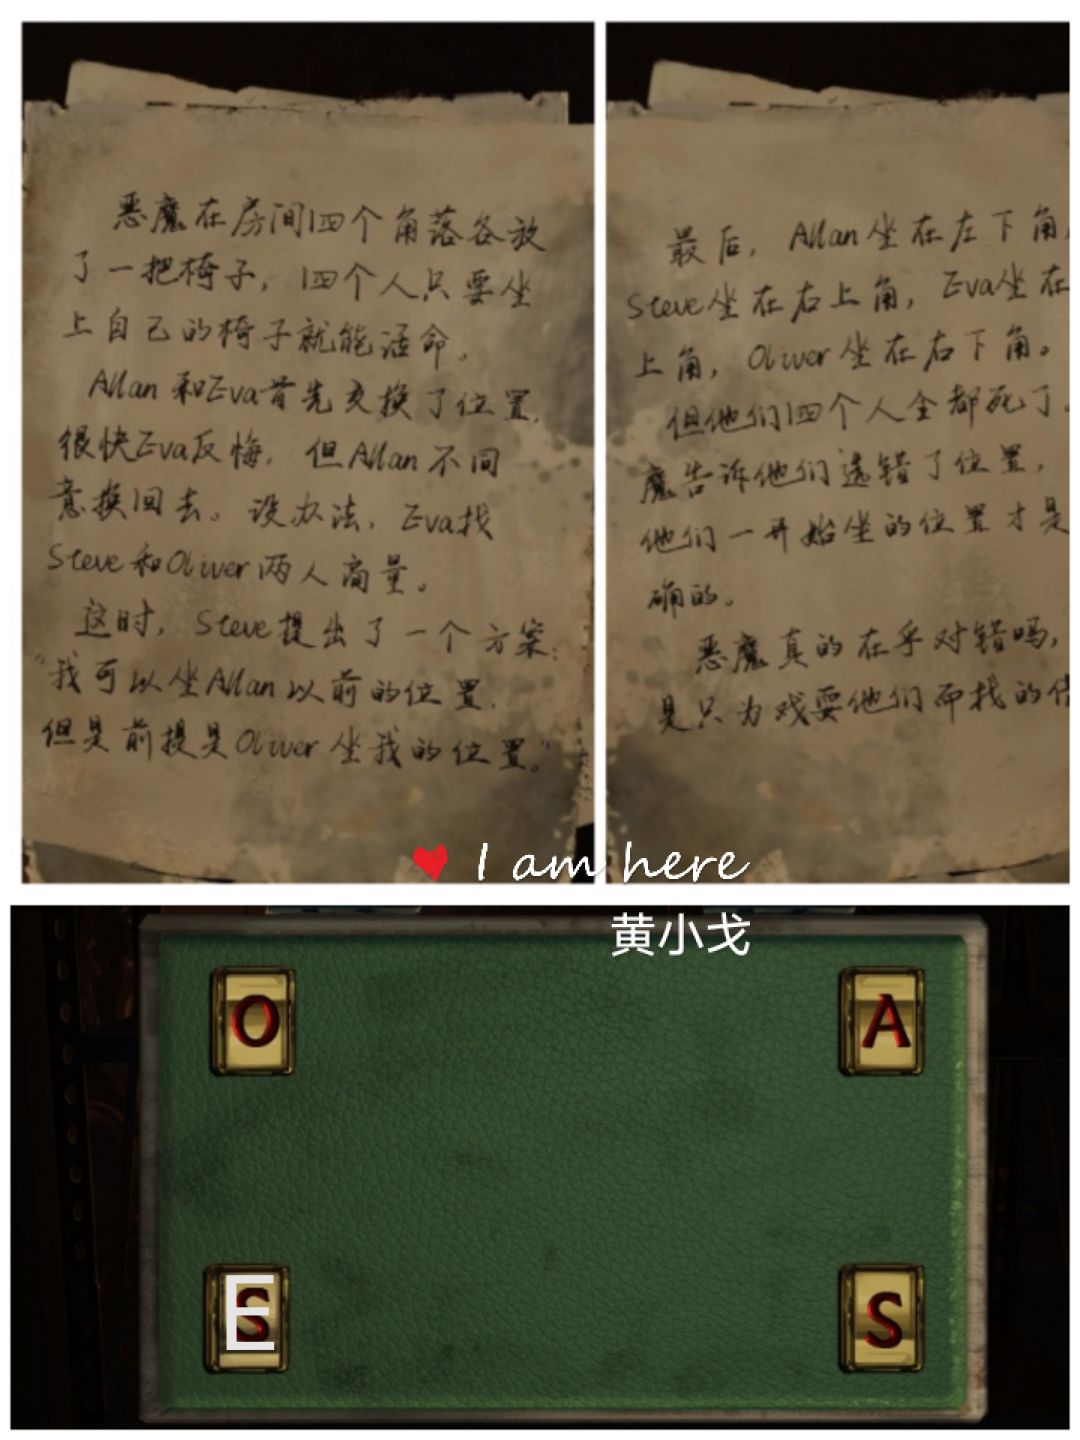 恶魔在房间四个角落各放
了一把椅子，四个人只要坐
上自己的椅子就能活命。
Allan和Eva首先交换了位置.
很快Eva反悔，但Allan不同
意换回去。没办法，Eva找
Steve和Oliver两人商量。
这时，Steve提出了一个方案：
“我可以坐Allan以前的位置，
但是前提是Oliver坐我的位置。”
最后，Allan坐在左下角，
Steve坐在右上角，Eva坐在
上角，Oliver坐在右下角。
但他们四个人全都死了。
魔告诉他们选错了位置，
他们一开始坐的位置才是
确的。
恶魔真的在乎对错吗，
是只为戏耍他们而找的借
I am here
黄小戈
O A
E S
S